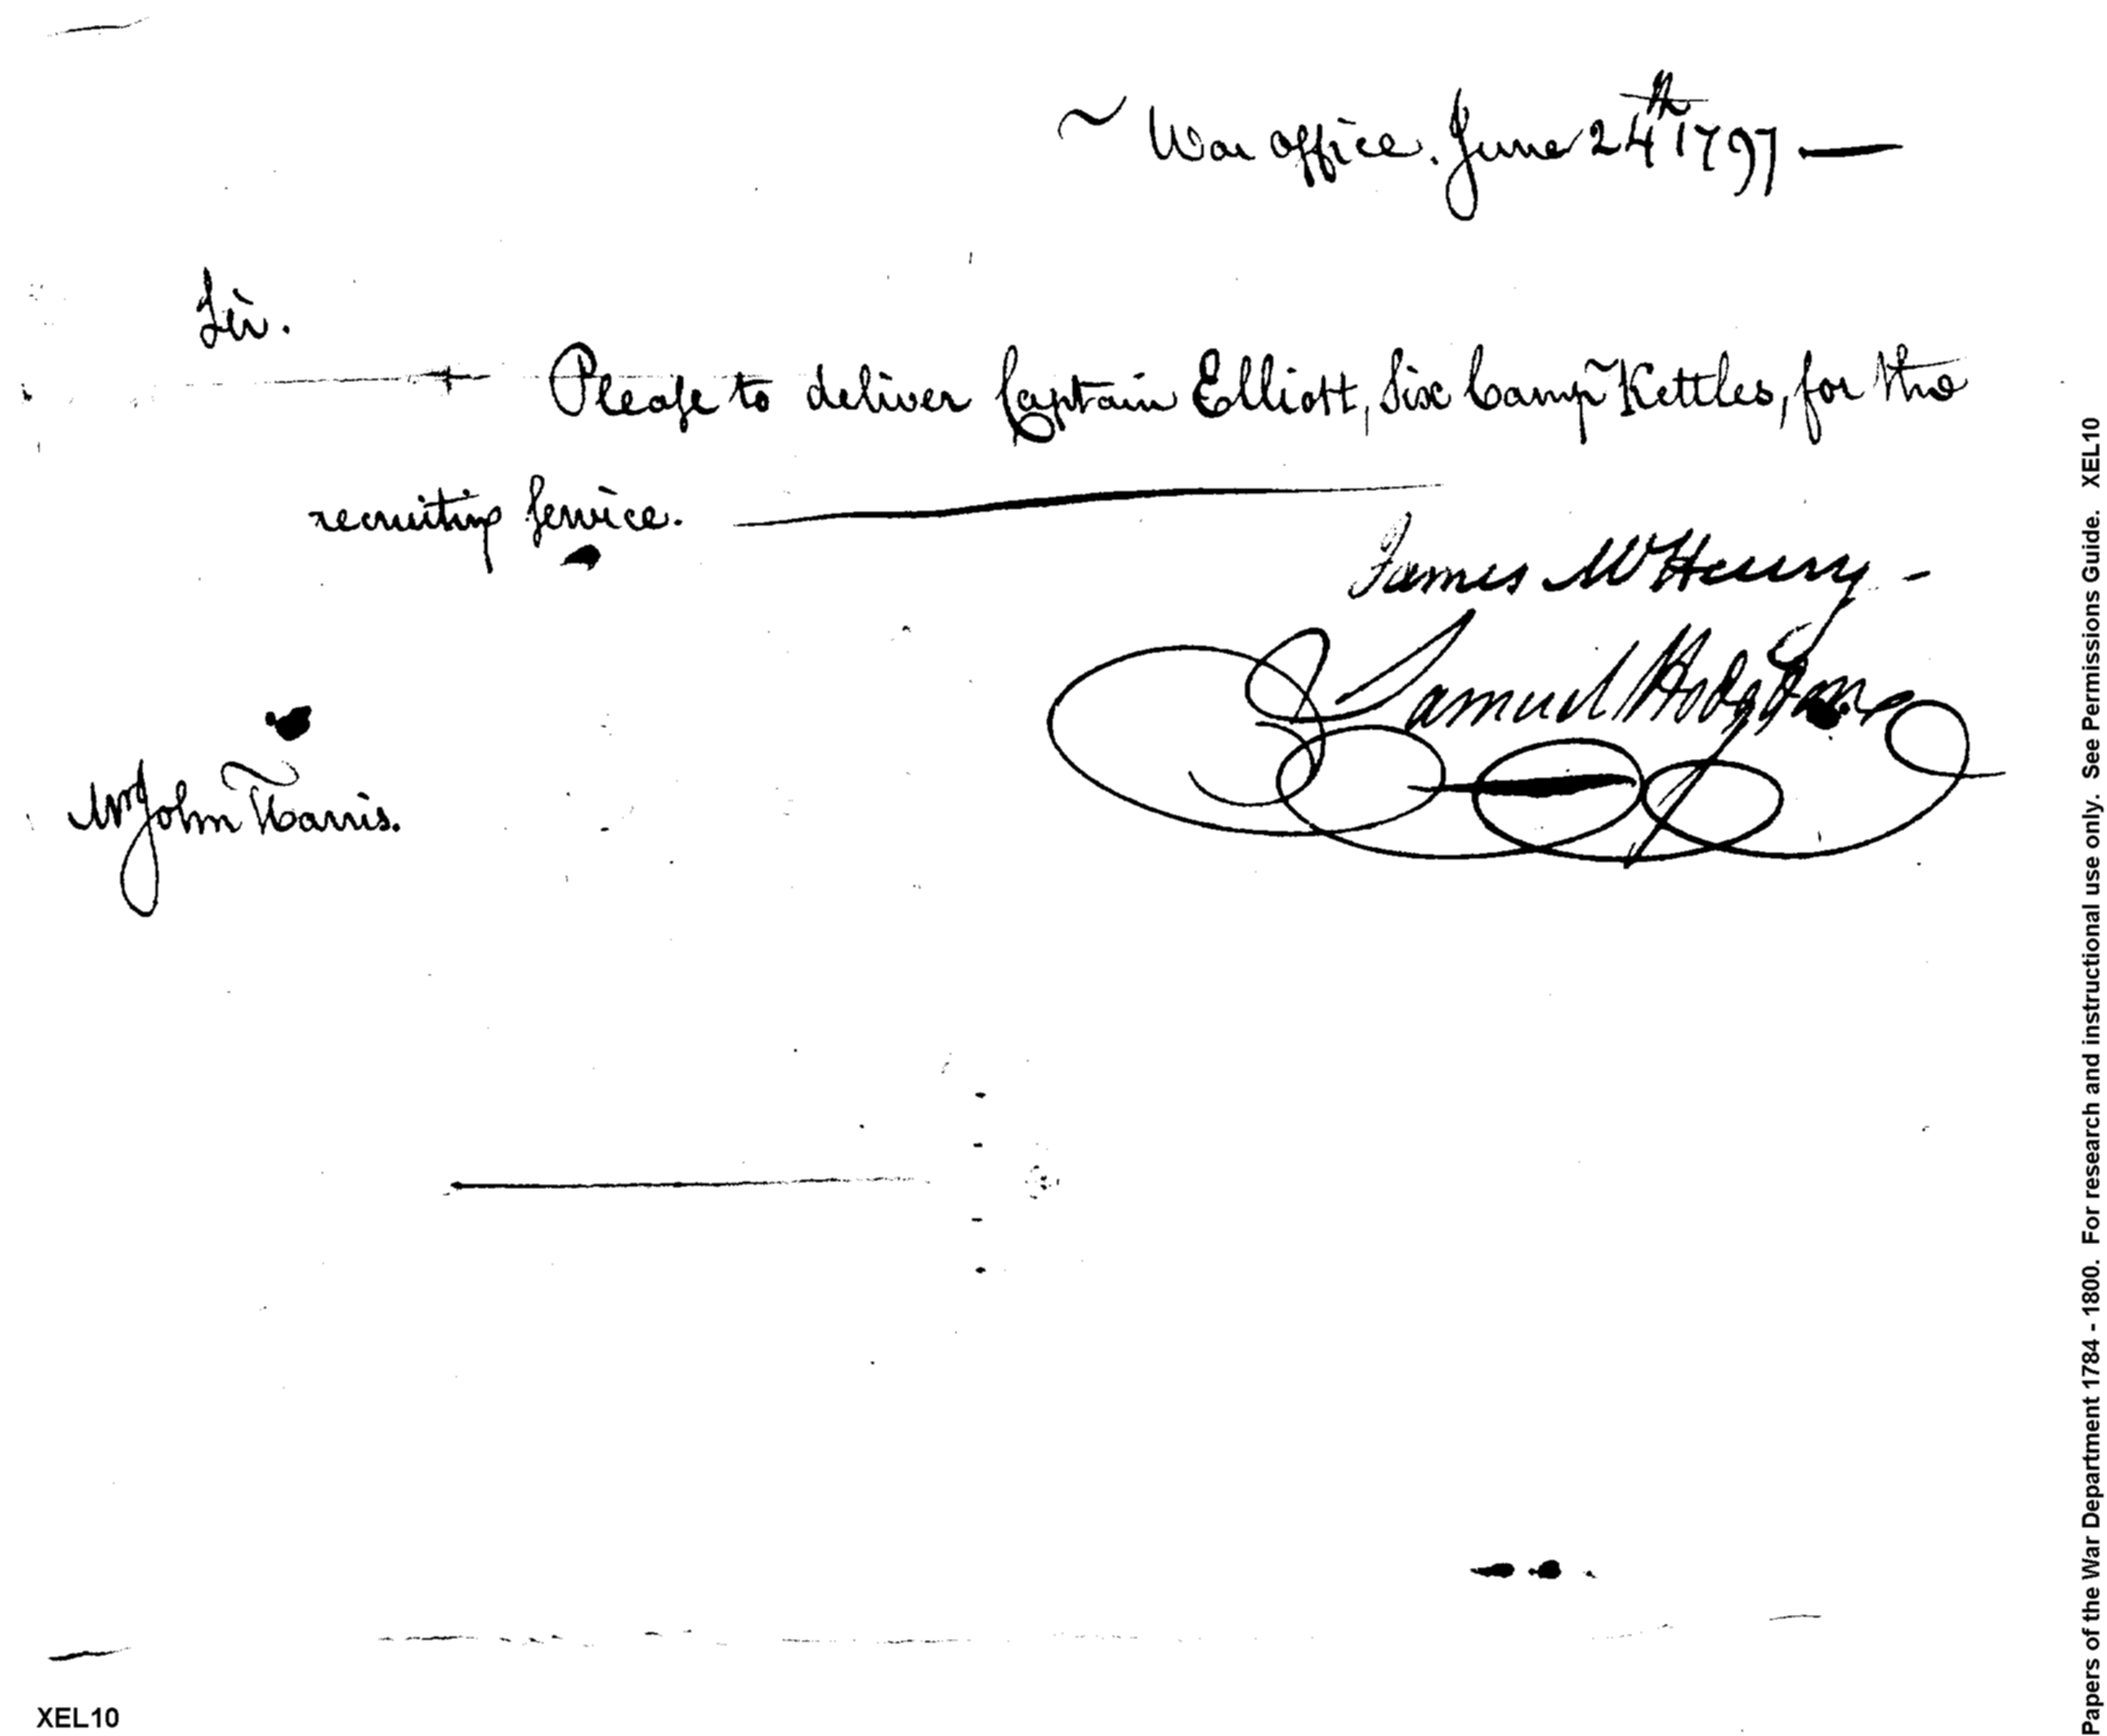 War office. June 24th 1797 —
Sir.
Please to deliver Captain Elliott, Six Camp Kettles, for the
recruiting Service.
James McHenry -
Samuel Hodgdon
Mr John Harris.
XEL10
Papers of the War Department 1784 - 1800. For research and instructional use only. See Permissions Guide. XEL10